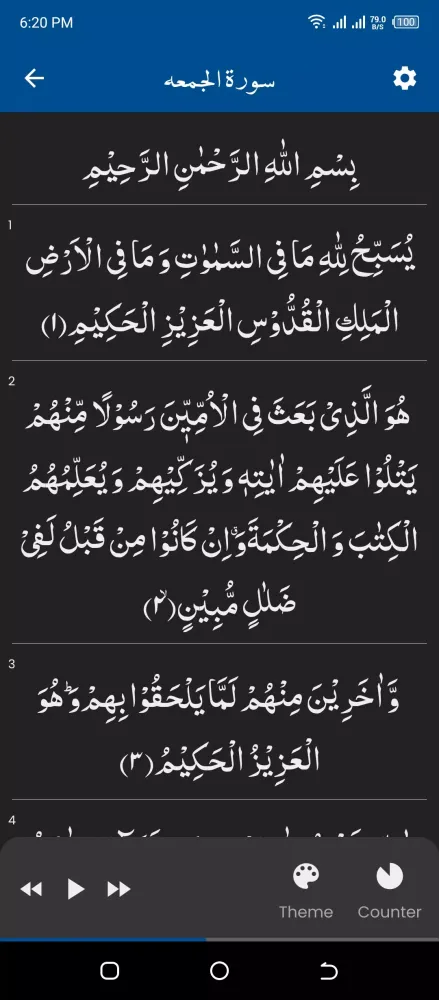 6:20 PM
79.0 B/S
100
سورة الجمعه
بِسْمِ اللّٰهِ الرَّحْمٰنِ الرَّحِيْمِ
1
يُسَبِّحُ لِلّٰهِ مَا فِى السَّمٰوٰتِ وَ مَا فِى الْاَرْضِ
الْمَلِكِ الْقُدُّوْسِ الْعَزِيْزِ الْحَكِيْمِ(۱)
2
هُوَ الَّذِىْ بَعَثَ فِى الْاُمِّيّٖنَ رَسُوْلًا مِّنْهُمْ
يَتْلُوْا عَلَيْهِمْ اٰيٰتِهٖ وَ يُزَكِّيْهِمْ وَ يُعَلِّمُهُمُ
الْكِتٰبَ وَ الْحِكْمَةَۗ وَ اِنْ كَانُوْا مِنْ قَبْلُ لَفِىْ
ضَلٰلٍ مُّبِيْنٍۙ(۲)
3
وَّ اٰخَرِيْنَ مِنْهُمْ لَمَّا يَلْحَقُوْا بِهِمْؕ وَ هُوَ
الْعَزِيْزُ الْحَكِيْمُ(۳)
4
Theme
Counter